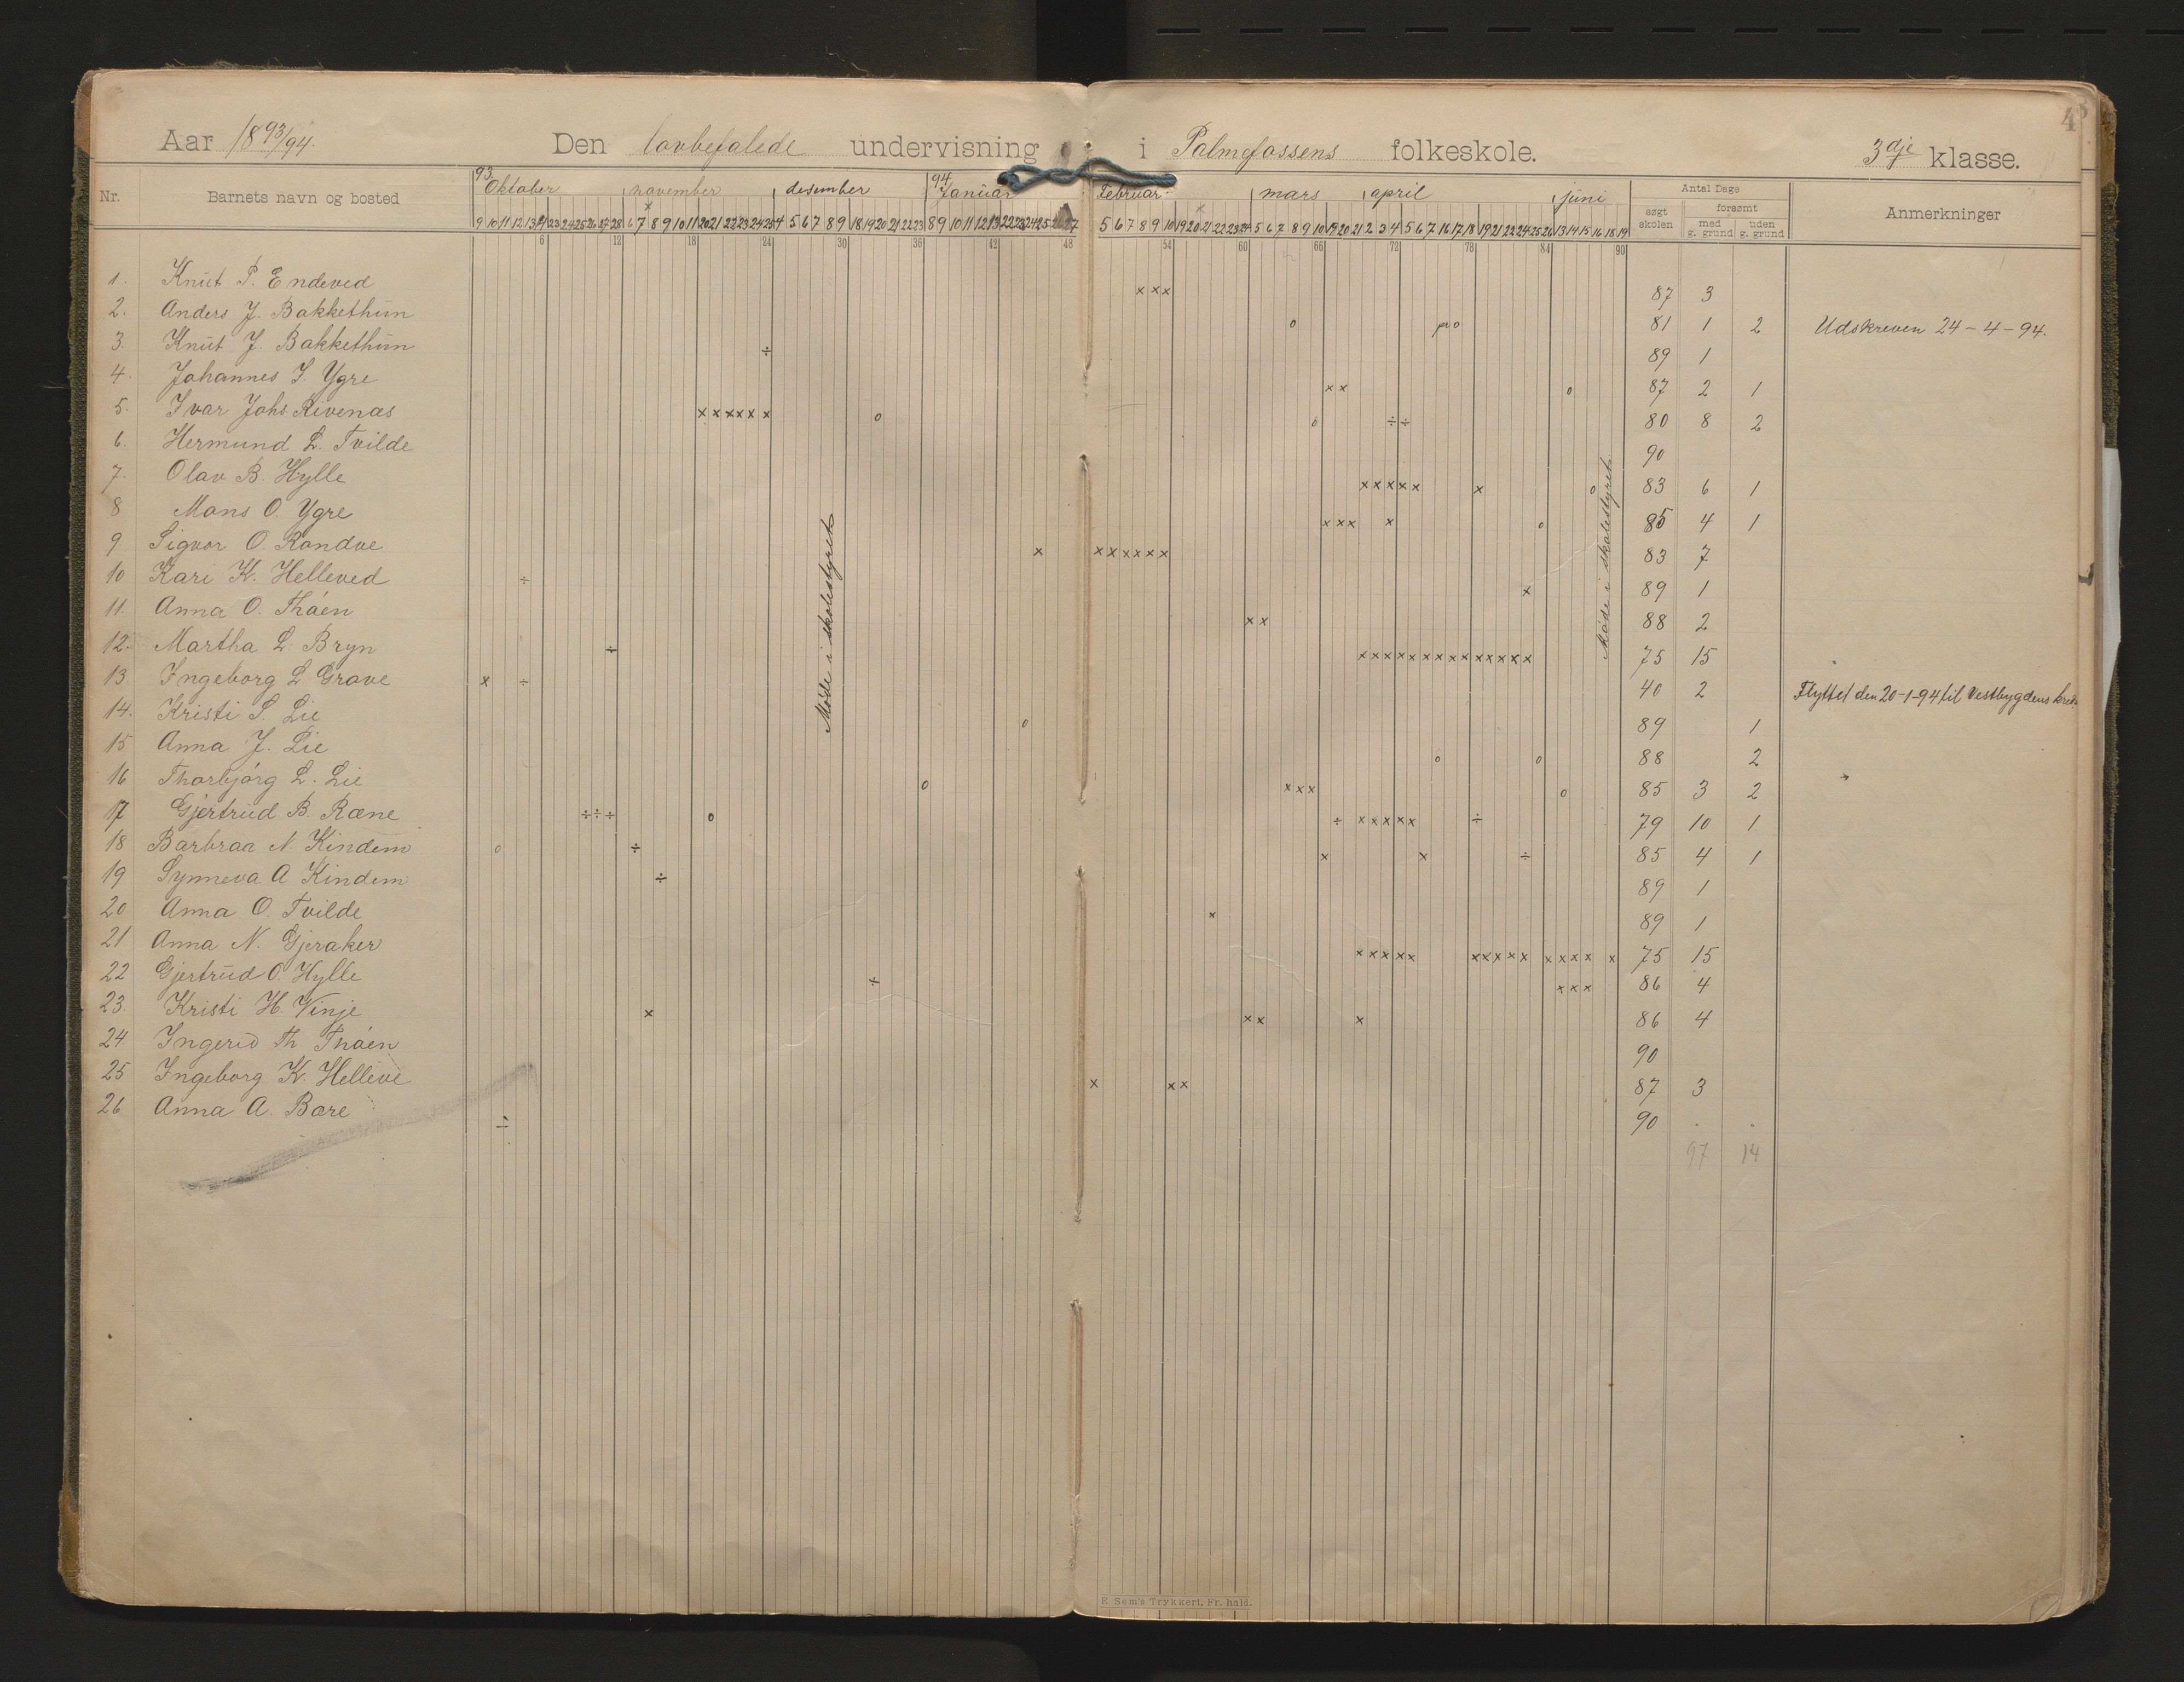 43
Aar 1893/94. Den lovbefalede undervisning i Palmefossens folkeskole. 3dje klasse.
Nr. Barnets navn og bosted 93 Oktober november desember 94 Januar Februar mars april juni Antal Dage Anmerkninger
søgt skolen forsømt med g. grund uden g. grund
6 12 18 24 30 36 42 48 54 60 66 72 78 84 90
1. Knut P. Endeved x x x 87 3
2. Anders J. Bakkethun o o 81 1 2 Udskreven 24-4-94.
3. Knut J. Bakkethun ÷ 89 1
4. Johannes S. Ygre x x o 87 2 1
5. Ivar Johs Rivenæs x x x x x x o o ÷ ÷ 80 8 2
6. Hermund L. Tvilde 90
7. Olav B. Hylle x x x x x x o 83 6 1
8 Mons O. Ygre x x x x o 85 4 1
9 Sigvor O. Rondve x x x x x x x 83 7
10 Kari K. Helleved ÷ x 89 1
11. Anna O. Tháen x x 88 2
12. Martha L. Bryn ÷ x x x x x x x x x x x x x x 75 15
13. Ingeborg L. Grove x ÷ 40 2 Flyttet den 20-1-94 til Vestbygdens kreds
14. Kristi S. Lie o 89 1
15 Anna J. Lie o o 88 2
16 Thorbjórg L. Lie o x x x o 85 3 2
17 Gjertrud B. Ræne ÷ ÷ ÷ o ÷ x x x x x ÷ 79 10 1
18 Barbraa N Kindem o ÷ x x ÷ 85 4 1
19 Synneva A Kindem ÷ 89 1
20 Anna O. Tvilde x 89 1
21 Anna N. Gjeraker x x x x x x x x x x x x x x x 75 15
22 Gjertrud O. Hylle ÷ x x x 86 4
23. Kristi H. Vinje x x x x 86 4
24. Ingerid Th. Tháen 90
25 Ingeborg K. Helleve x x x 87 3
26 Anna A. Børe ÷ 90
97 14
Møde i skolestyret
Møde i skolestyret
E. Sem's Trykkeri, Fr. hald.